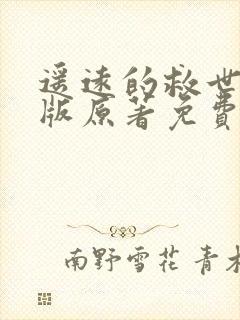 遥远的救世
版原著免费
南野雪花 青木